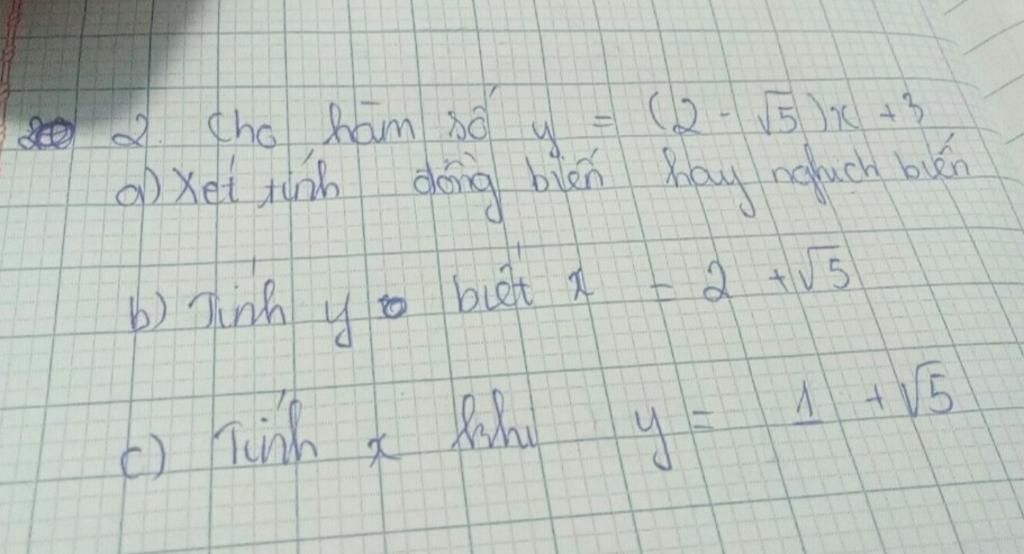 2. Cho hàm số y = (2 - √5)x + 3
a) Xét tính đồng biến hay nghịch biến
b) Tính y biết x = 2 + √5
c) Tính x khi y = 1 + √5